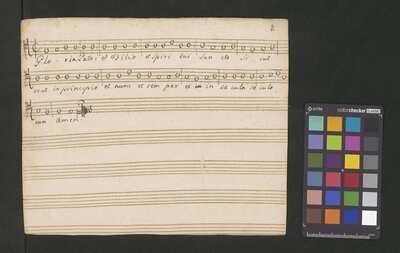 2
Glo - ria patri et filio et spiri tui San cto Si cut
erat in principio et nunc et sem per et in in se cula se culo
rum Amen
colorchecker CLASSIC